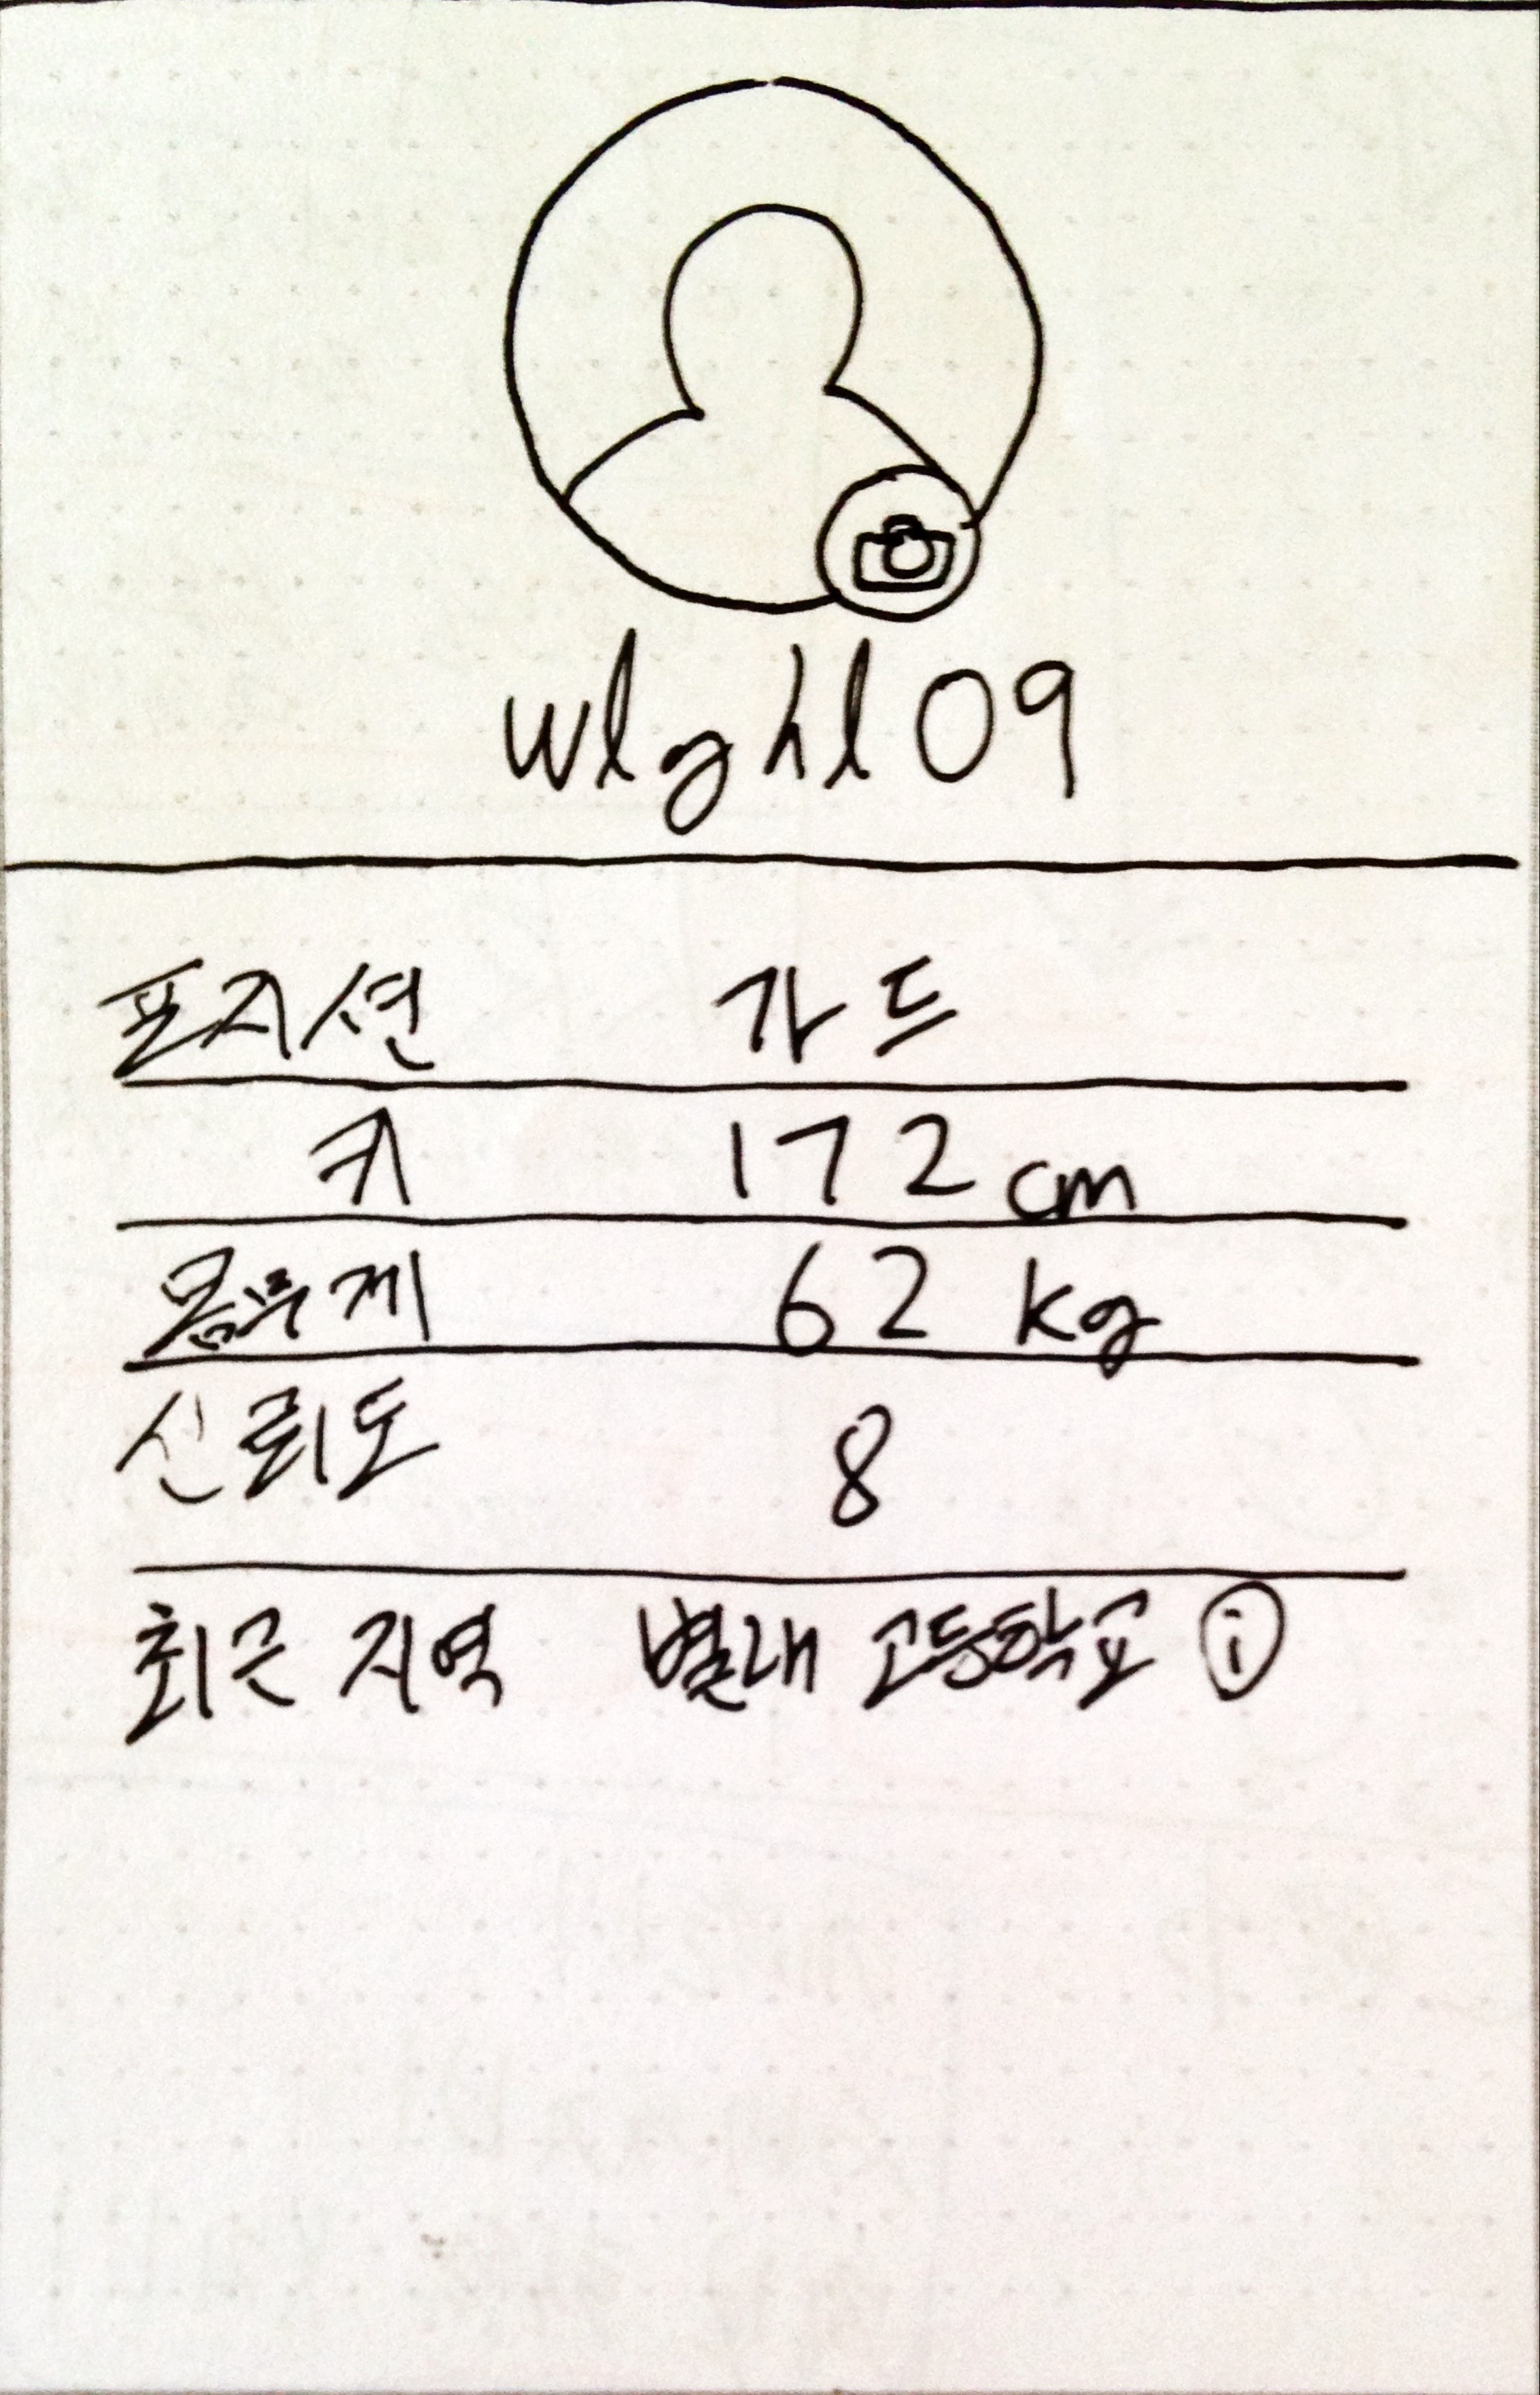 wlghl09
포지션 가드
키 172cm
몸무게 62 kg
신뢰도 8
최근 지역 별내 고등학교 i